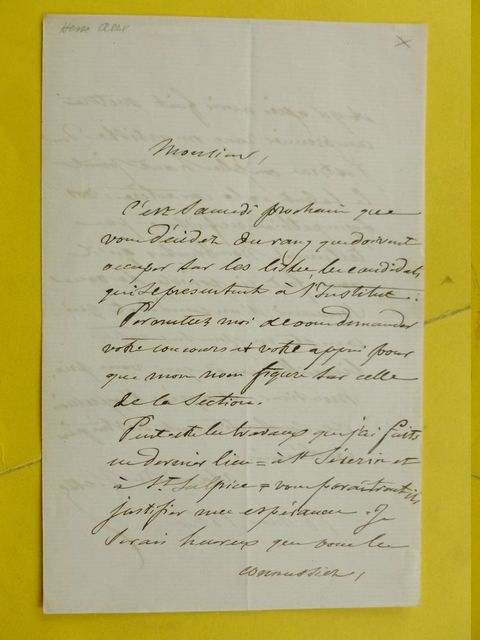 Hesse Alex
Monsieur,
C'est Samedi prochain que
vous décidez du rang que doivent
occuper sur les listes, les candidats
qui se présentent à l'Institut.
Permettez moi de vous demander
votre concours et votre appui pour
que mon nom figure sur celle
de la Section.
Peut être les travaux que j'ai faits
en dernier lieu = à St Séverin et
à St Sulpice = vous paraîtront ils
justifier mes espérances. Je
serais heureux que vous les
connussiez,